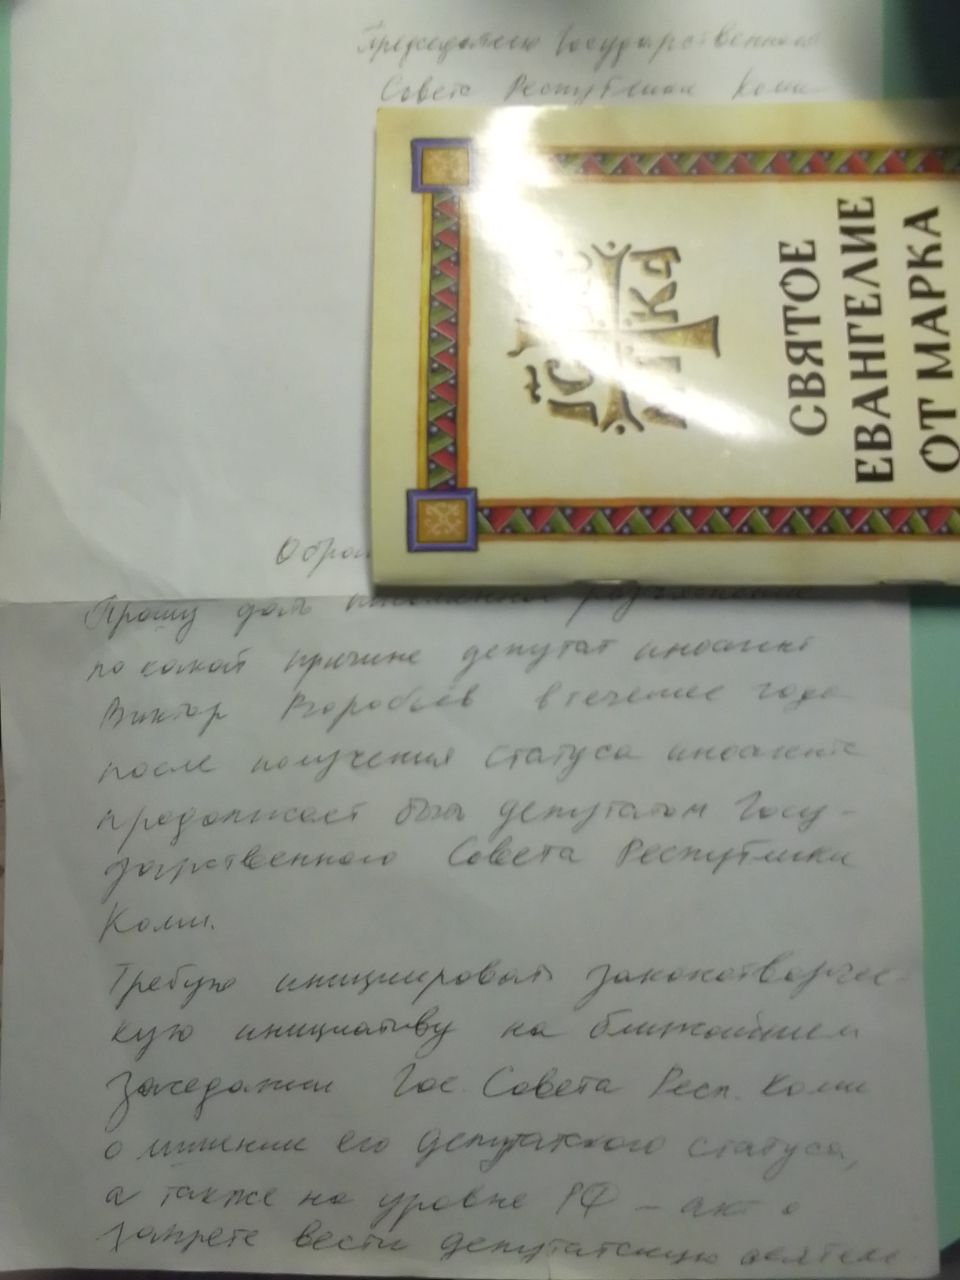 Председателю Государственного
Совета Республики Коми
СВЯТОЕ
ЕВАНГЕЛИЕ
ОТ МАРКА
Обра
Прошу дать письменное разъяснение
по какой причине депутат иноагент
Виктор Воробьёв в течение года
после получения статуса иноагента
продолжает быть депутатом Госу-
дарственного Совета Республики
Коми.
Требую инициировать законотворчес-
кую инициативу на ближайшем
заседании Гос. Совета Респ. Коми
о лишении его депутатского статуса,
а также на уровне РФ – акт о
запрете вести депутатскую